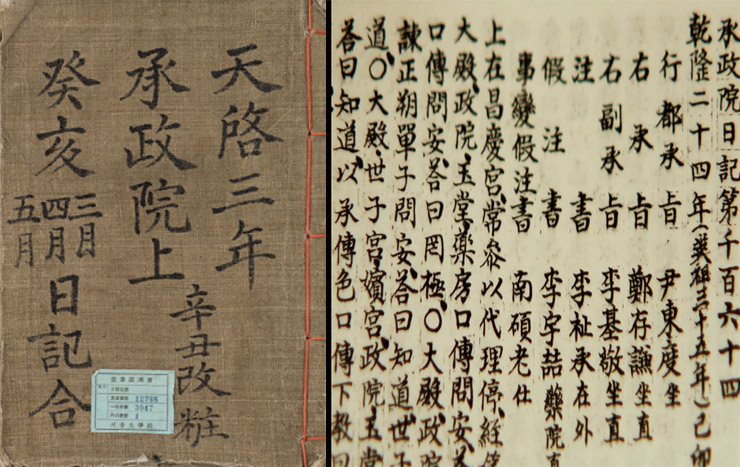 天啓三年
承政院上
辛丑改粧
癸亥
三月
四月
五月
日記合
12788
3047
1
서울大學校
承政院日記第千百六十四
乾隆二十四年(英祖三十五年)己卯
行都承旨 尹東度坐
右承旨 鄭存謙坐直
右副承旨 李基敬坐直
注書 李祉承在外
假注書 李宇喆藥院直
事變假注書 南碩老仕
上在昌慶宮常參以代理停經筵
大殿政院玉堂藥房口傳問安
口傳問安答曰罔極〇大殿政院
諫正朔單子問安答曰知道世子
道〇大殿世子宮嬪宮政院玉堂
答曰知道以承傳色口傳下敎曰